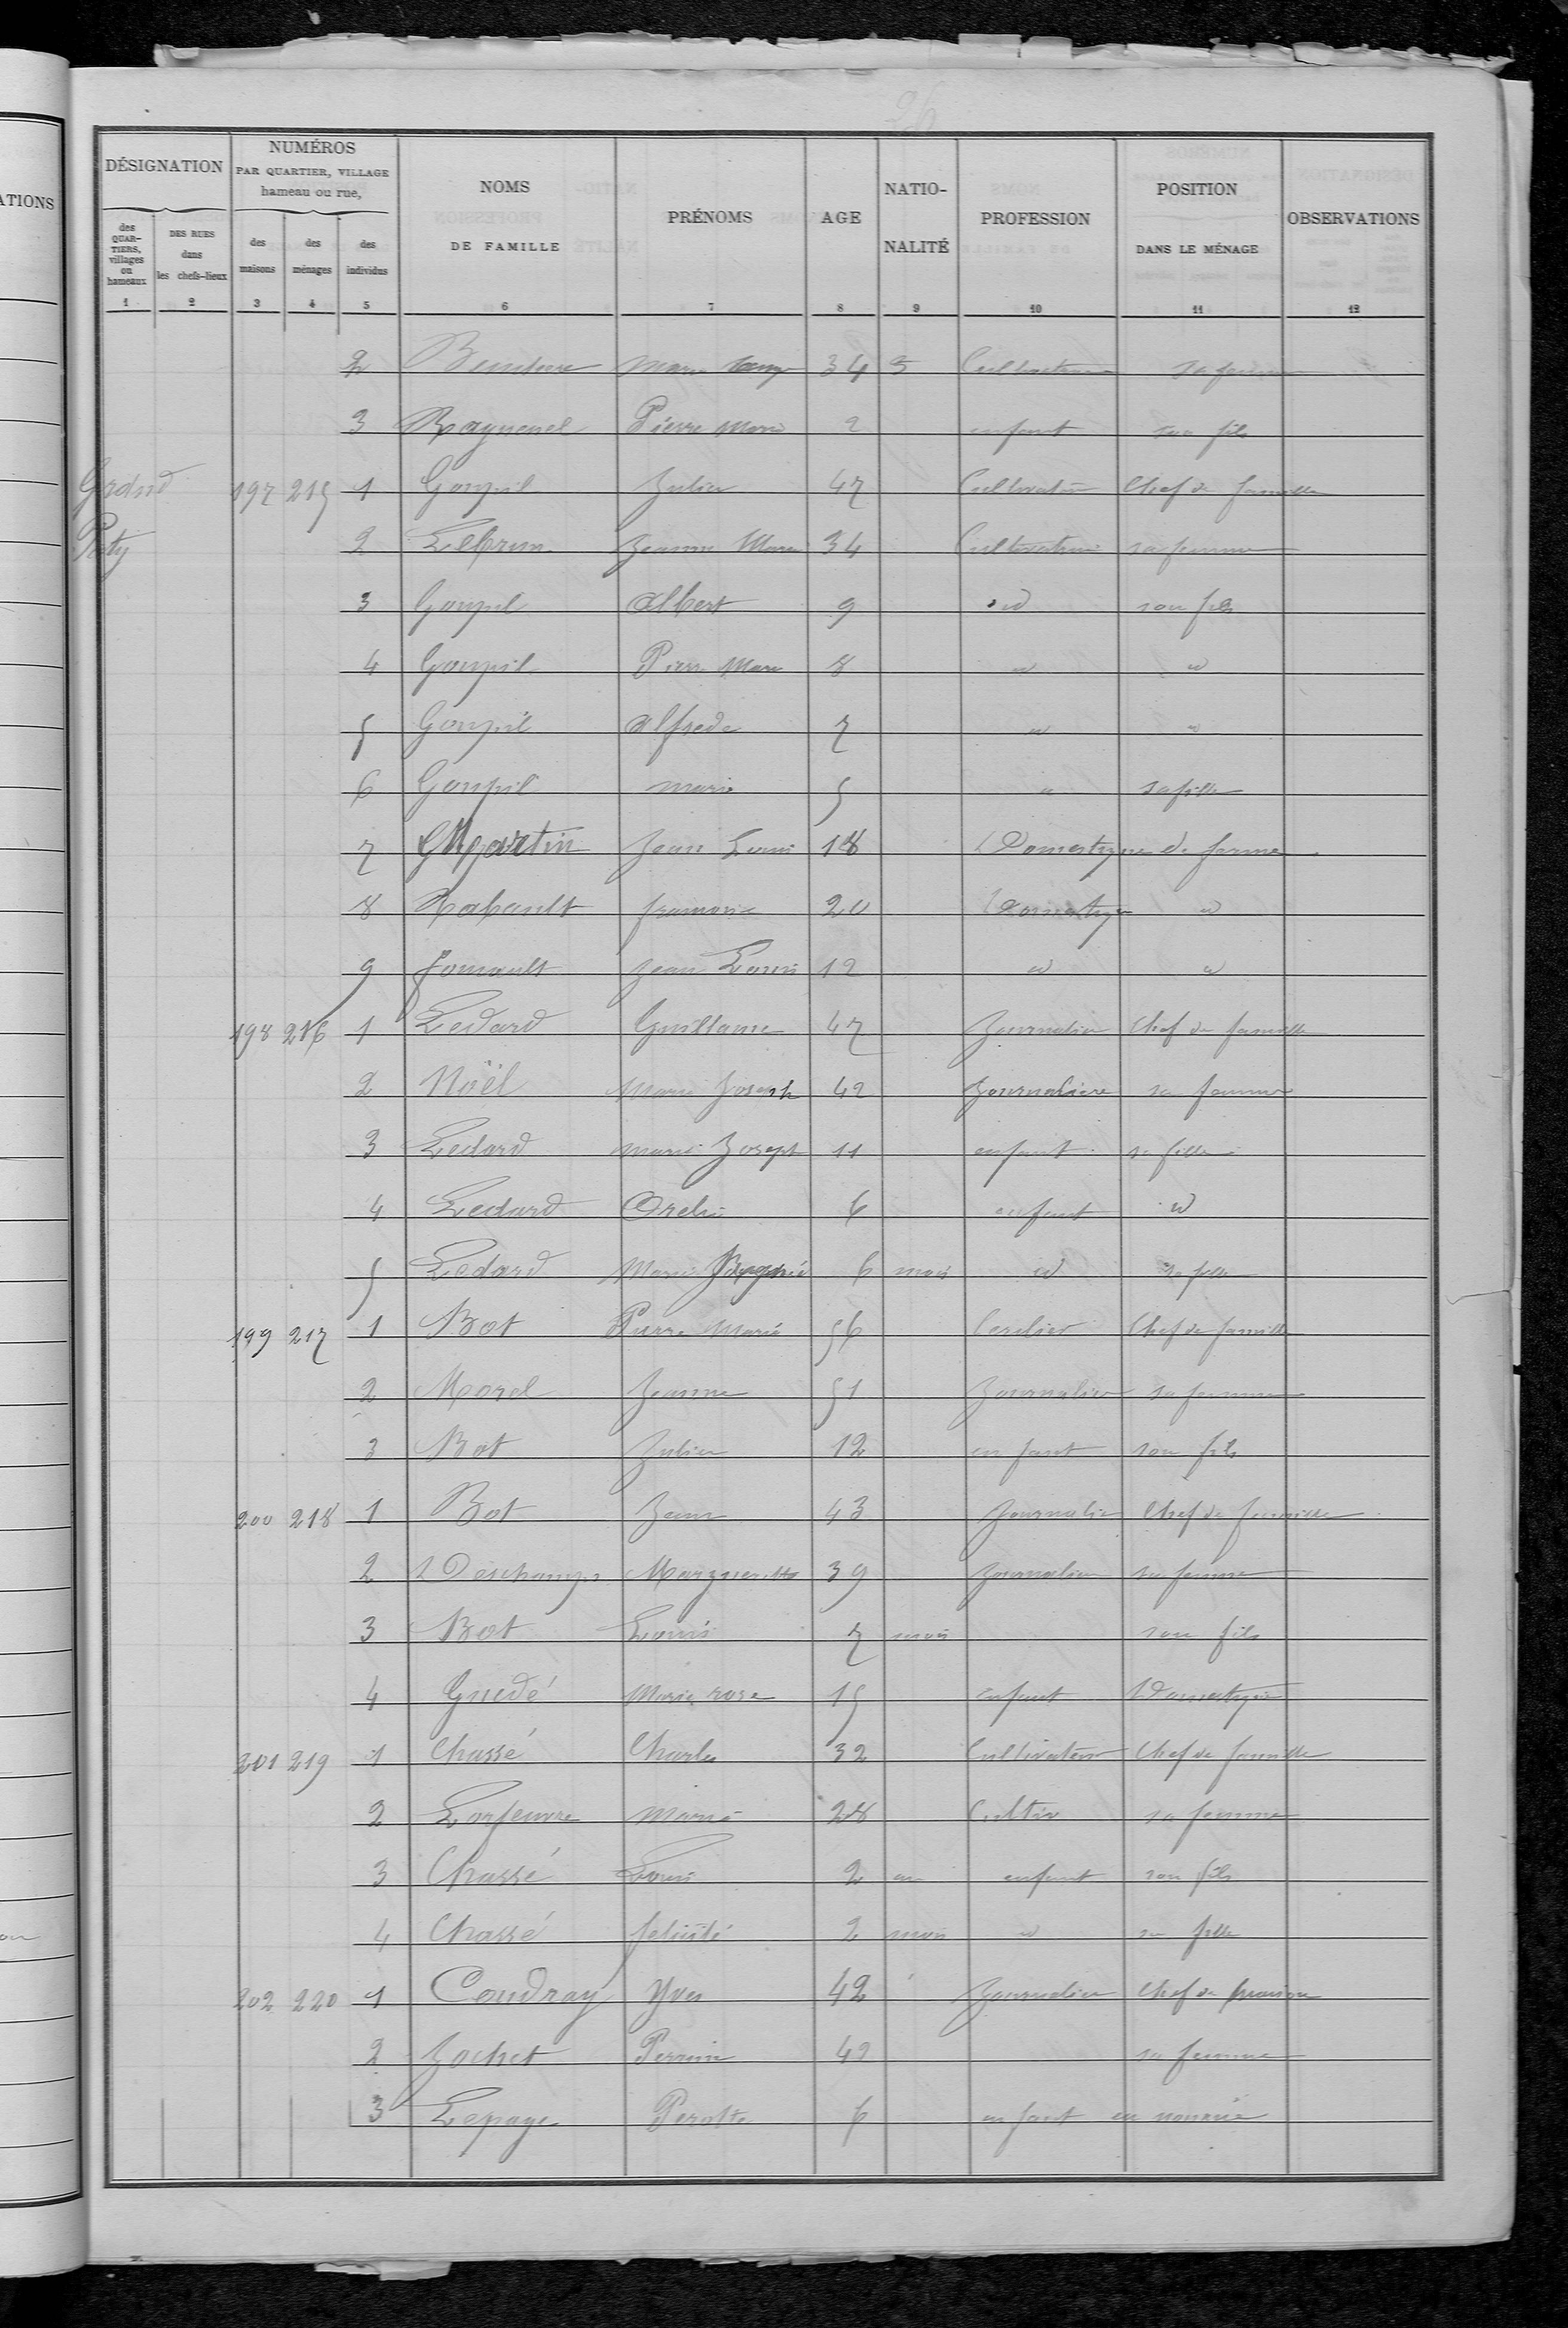 ATIONS
26
DÉSIGNATION
NUMÉROS PAR QUARTIER, VILLAGE hameau ou rue,
NOMS DE FAMILLE
PRÉNOMS
AGE
NATIO-NALITÉ
PROFESSION
POSITION DANS LE MÉNAGE
OBSERVATIONS
des QUAR-TIERS, villages ou hameaux
DES RUES dans les chefs-lieux
des maisons
des ménages
des individus
1 2 3 4 5 6 7 8 9 10 11 12
2 Marie 34 5 sa femme
3 Raguenel Pierre Marie 2 enfant son fils
Grand 197 215 1 Goupil Julien 47 Cultivateur Chef de famille
2 Lebrun Jeanne Marie 34 Cultivatrice sa femme
3 Goupil Albert 9 id son fils
4 Goupil Pierre Marie 8 id id
5 Goupil Alfrede 7 id id
6 Goupil marie 5 id sa fille
7 Martin Jean Louis 18 Domestique de ferme
8 Rabault 20 Domestique id
9 Jean Louis 12 id id
198 216 1 Ledard Guillaume 47 Journalier Chef de famille
2 Noël Marie Joseph 42 Journaliere sa femme
3 Ledard marie Joseph 11 enfant sa fille
4 Ledard 6 enfant id
5 Ledard Marie 6 mois id sa fille
199 217 1 Bot Pierre Marie 56 Chef de famille
2 Morel Jeanne 51 Journalier sa femme
3 Bot Julien 12 enfant son fils
200 218 1 Bot Jean 43 Journalier Chef de famille
2 Deschamps Margueritte 39 Journalier sa femme
3 Bot Louis 7 mois son fils
4 Guedé Marie rose 15 enfant Domestique
201 219 1 Chassé Charles 32 Cultivateur Chef de famille
2 Lorfeuvre Marie 28 Cultiv sa femme
3 Chassé Louis 2 an enfant son fils
4 Chassé felicité 2 mois id sa fille
202 220 1 Coudray Yves 42 Journalier Chef de maison
2 Jochet Perrine 42 sa femme
3 Lepage Perotte 6 enfant en